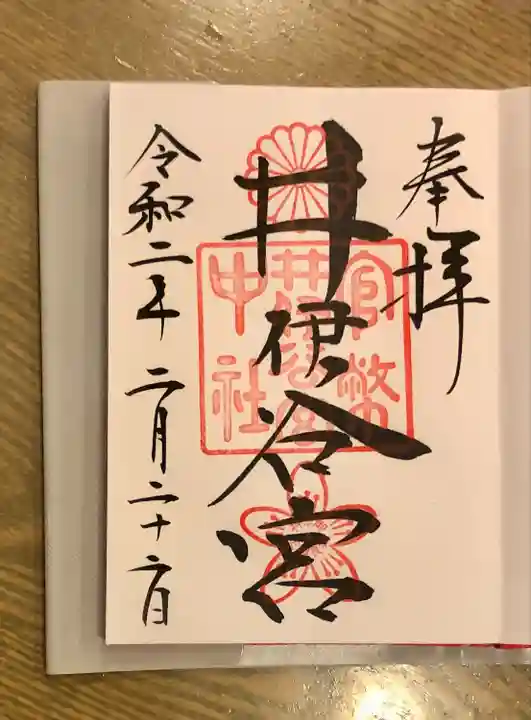 奉拝
井伊谷宮
官幣
井伊谷宮
中社
令和二年 二月二十六日